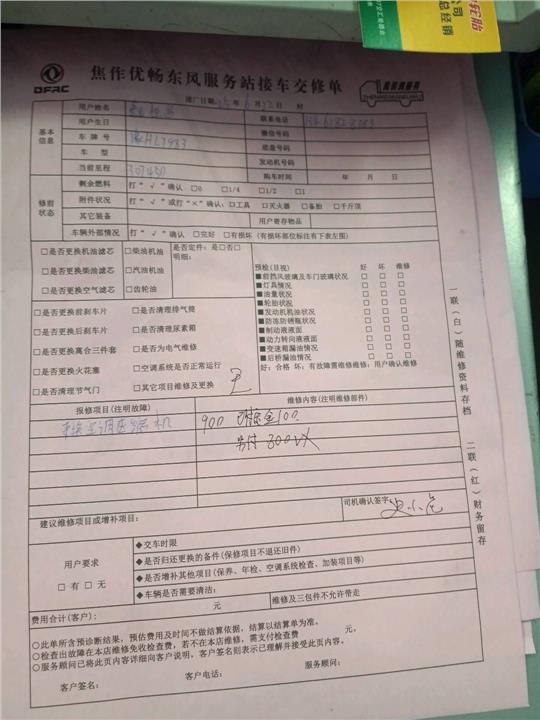 DFAC
焦作优畅东风服务站接车交修单
基本信息
用户姓名
进厂日期: 25 年 6 月 12 日 时
用户生日
联系电话
车 牌 号
豫HL7983
微信号码
底盘号码
车 型
发动机号码
当前里程
307450
购车时间 年 月 日
修前状态
剩余燃料 打“√”确认 □0 □1/4 □1/2 □1
附件状况 打“√”或打“×”确认: □工具 □灭火器 □备胎 □千斤顶
其它装备
用户寄存物品
车辆外部情况 打“√”确认 □完好 □有损坏 (有损坏部位标注有下表左图)
□是否更换机油滤芯 □柴油机油
是否定件: 是□否□
明细:
□是否更换柴油滤芯 □汽油机油
□是否更换空气滤芯 □齿轮油
□是否更换前刹车片 □是否清理排气筒
□是否更换后刹车片 □是否清理尿素箱
□是否更换离合三件套 □是否为电气维修
□是否更换火花塞 □空调系统是否正常运行
□是否清理节气门 □其它项目维修及更换
预检(目视) 好 坏 维修
■前挡风玻璃及车门玻璃状况 □ □ □
■灯具情况 □ □ □
■油量状况 □ □ □
■轮胎状况 □ □ □
■发动机机油状况 □ □ □
■防冻防锈瓶状况 □ □ □
■制动液液面 □ □ □
■动力转向液液面 □ □ □
■变速箱漏油情况 □ □ □
■后桥漏油情况 □ □ □
好: 合格 坏: 有故障需维修维修: 用户确认维修
报修项目(注明故障)
维修内容(注明维修部件)
换空调压缩机
900 现金100
另付800
建议维修项目或增补项目:
司机确认签字
用户要求
□ 有 □ 无
◆交车时限
◆是否归还更换的备件(保修项目不退还旧件)
◆是否增补其他项目(保养、年检、空调系统检查、加装项目等)
◆车辆是否需要清洁:
费用合计(客户): 元
维修及三包件不允许带走
○此单所含预诊断结果, 预估费用及时间不做结算依据, 结算以结算单为准。
○检查出故障在本店维修免收检查费, 若不在本店维修, 需支付检查费 元。
○服务顾问已将此页内容详细向客户说明。客户签名则表示已理解并接受此页内容。
客户签名: 客户电话: 服务顾问:
一联(白)随维修资料存档
二联(红)财务留存
总经销